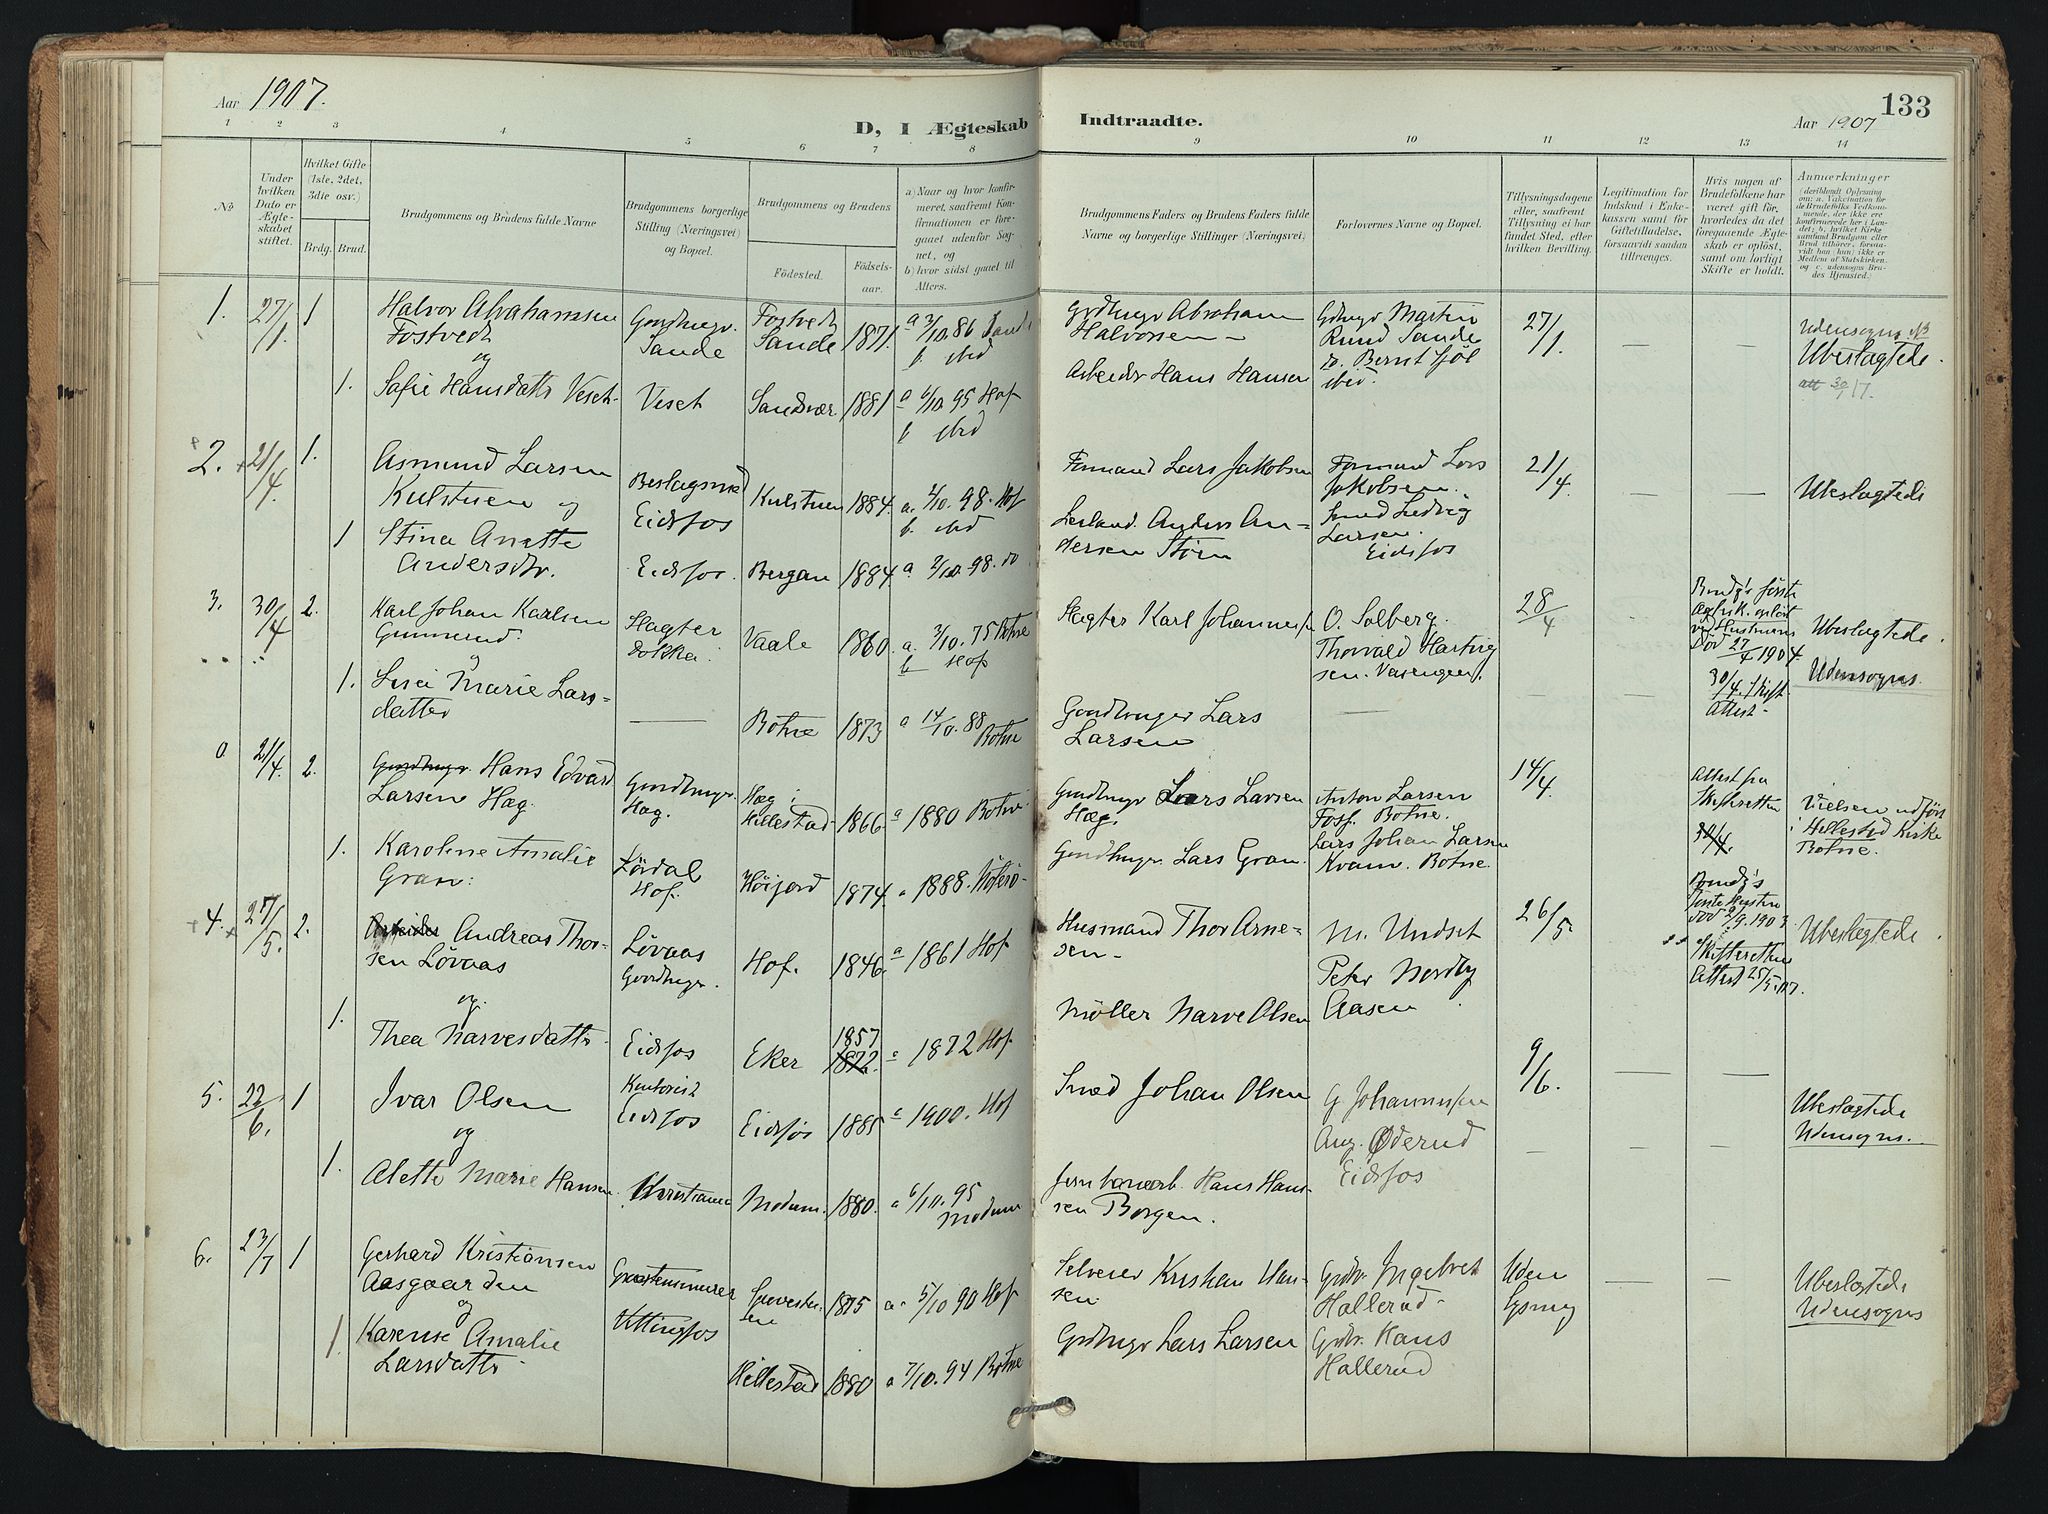 Aar 1907.
D, I Ægteskab
Indtraadte.
Aar 1907
133
1 2 3 4 5 6 7 8 9 10 11 12 13 14
No
Under
hvilken
Dato er
Ægte-
skabet
stiftet.
Hvilket Gifte
(1ste, 2det,
3die osv.)
Brdg. Brud.
Brudgommens og Brudens fulde Navne
Brudgommens borgerlige
Stilling (Næringsvei)
og Bopæl.
Brudgommens og Brudens
Födested.
Födsels-
aar.
a) Naar og hvor konfir-
meret, saafremt Kon-
firmationen er fore-
gaaet udenfor Sog-
net, og
b) hvor sidst gaaet til
Alters.
Brudgommens Faders og Brudens Faders fulde
Navne og borgerlige Stillinger (Næringsvei)
Forlovernes Navne og Bopæl.
Tillysningsdagene
eller, saafremt
Tillysning ei har
fundet Sted, efter
hvilken Bevilling.
Legitimation for
Indskud i Enke-
kassen samt for
Giftetilladelse,
forsaavidt saadan
tiltrænges.
Hvis nogen af
Brudefolkene har
været gift för,
hvorledes da det
foregaaende Ægte-
skab er oplöst,
samt om lovligt
Skifte er holdt.
Anmærkninger
(deriblandt Oplysning
om: a. Vakcination for
de Brudefolks Vedkom-
mende, der ikke ere
konfirmerede her i Lan-
det; b. hvilket Kirke-
samfund Brudgom eller
Brud tilhører, forsaa-
vidt han (hun) ikke er
Medlem af Statskirken
og c. udensogns Bru-
des Hjemsted.)
1. 27/1 1 Halvor Abrahamsen
Fostvedt
og
Gaardbruger
Sande
Fostvedt
Sande
1871.
a 3/10. 86 Sande
b. ibd
Grdbrugr Abraham
Halvorsen
Gdbrugr Martin
Rund Sande
do. Bernt
ibid.
27/1.
— —
Udensogns. NB
Ubeslægtede.
att 30/17.
1. Sofie Hansdattr Veset
Veset
Sandsvær.
1881
a 6/10. 95 Hof
b ibid
Arbeider Hans Hansen
2. 21/4 1. Asmund Larsen
Kulstuen og
Beslagsmed
Eidsfos
Kulstuen
1884.
a. 2/10. 98. Hof
b. ibid
Formand Lars Jakobsen
Formand Lars
Jakobsen.
Smed Ludvig
Larsen.
Eidsfos
21/4.
— —
Ubeslægtede
1 Stina Anette
Andersdtr.
Eidsfos.
Bergan
1884
a. 2/10. 98. do
Leiland. Anders An-
dersen Störn
3. 30/4 2. Karl Johan Karlsen
Gunnerud.
og
Slagter
Vaale
1860.
a. 3/10. 75 Botne
b Hof
Slagter Karl Johannessen
O. Solberg.
Thorvald Hartvig
sen. Vasengen.
28/4
Brudg's første
Ægtesk. opløst
ved Hustruens
Død 27/4 1904.
30/4. Skift
Attest
Ubeslægtede.
Udensogns.
1. Lisa Marie Lars-
datter
—
Botne
1873
a 14/10. 88
Botne
Gaardbruger Lars
Larsen
—
0 21/4. 2. Gaardbruger Hans Edvard
Larsen Hag.
Gaardbruger
Hag.
Hag i
Hillestad
1866.
a 1880 Botne
Gaardbrugr Lars Larsen
Hag.
Anton Larsen
Foss. Botne.
Lars Johan Larsen
Kvam. Botne.
14/4.
Attest fra
Skifteretten
Vielsen udført
i Hellestad Kirke
Botne.
1. Karoline Amalie
Gran.
Hof.
Høijord
1874.
a 1888.
Gaardbruger Lars Gran.
4. 27/5. 2. Arbeider Andreas Thor-
sen Løvaas
og
Løvaas
Gaardbruger.
Hof.
1846.
a 1861 Hof
Husmand Thor Arne-
sen
M. Undset
Peter Nordby
Aasen
26/5.
Brudg's
første Hustru
død 2/9. 1903.
Skifterettens
Attest 25/5. 07.
Ubeslægtede.
1. Thea Narvesdattr.
Eidsfos
Eker
1857
1872.
a 1872 Hof
Møller Narve Olsen
5. 22/6. 1 Ivar Olsen
og
Kontorist
Eidsfos
Eidsfos
1885
a 1900. Hof
Smed Johan Olsen
G Johannessen
Aug. Øderud
Eidsfos
9/6.
— —
Ubeslægtede
Udensogns.
1. Alette Marie Hansen.
Kristiania
Modum.
1880.
a 6/10. 95
Modum
Jernbanearb. Hans Han-
sen Borgen.
6. 23/7 1 Gerhard Kristiansen
Aasgaarden
og
Graastensmurer
Vittingfos
1875
a. 5/10 90 Hof
Selveier Kristian Han-
sen.
Grdbr. Ingebret
Hallerud.
Grdbr. Hans
Hallerud
Uden
lysning
— —
Ubeslægtede
Udensogns
1. Karense Amalie
Larsdattr.
Hillestad
1880
a 7/10. 94 Botne
Grdbrugr Lars Larsen